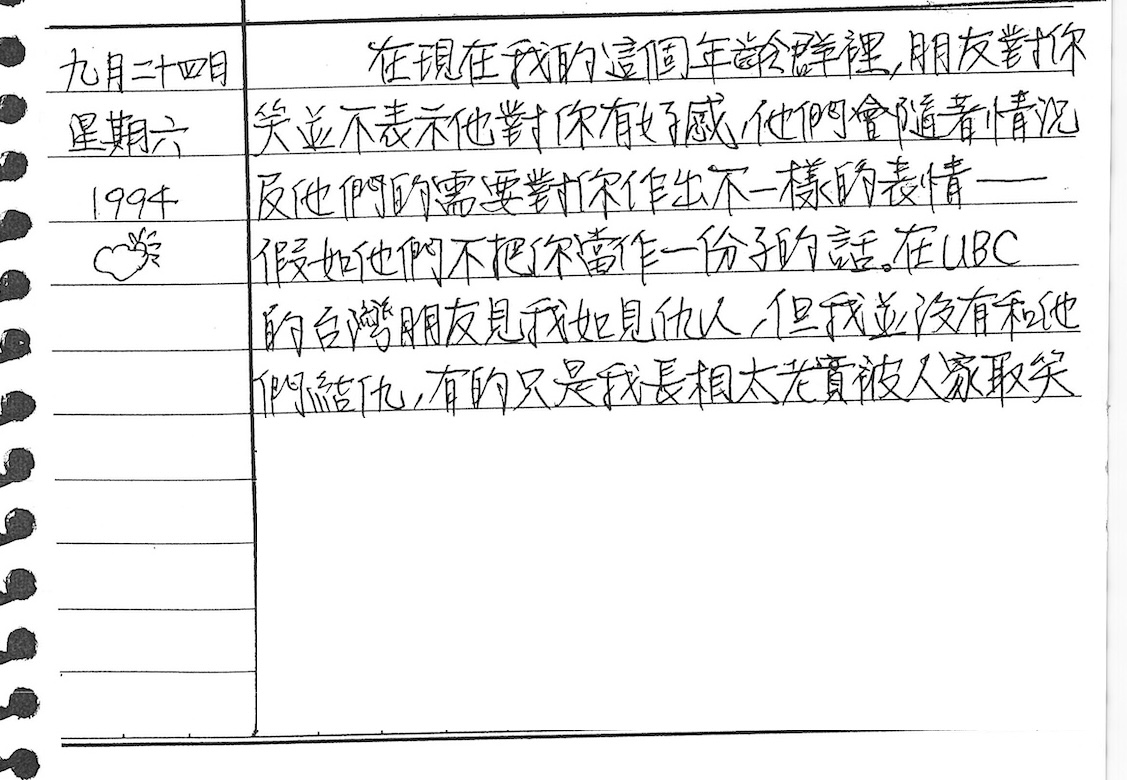 九月二十四日
星期六
1994
在現在我的這個年齡群裡,朋友對你
笑並不表示他對你有好感,他們會隨著情況
及他們的需要對你作出不一樣的表情——
假如他們不把你當作一份子的話。在UBC
的台灣朋友見我如見仇人,但我並沒有和他
們結仇,有的只是我長相太老實被人家取笑